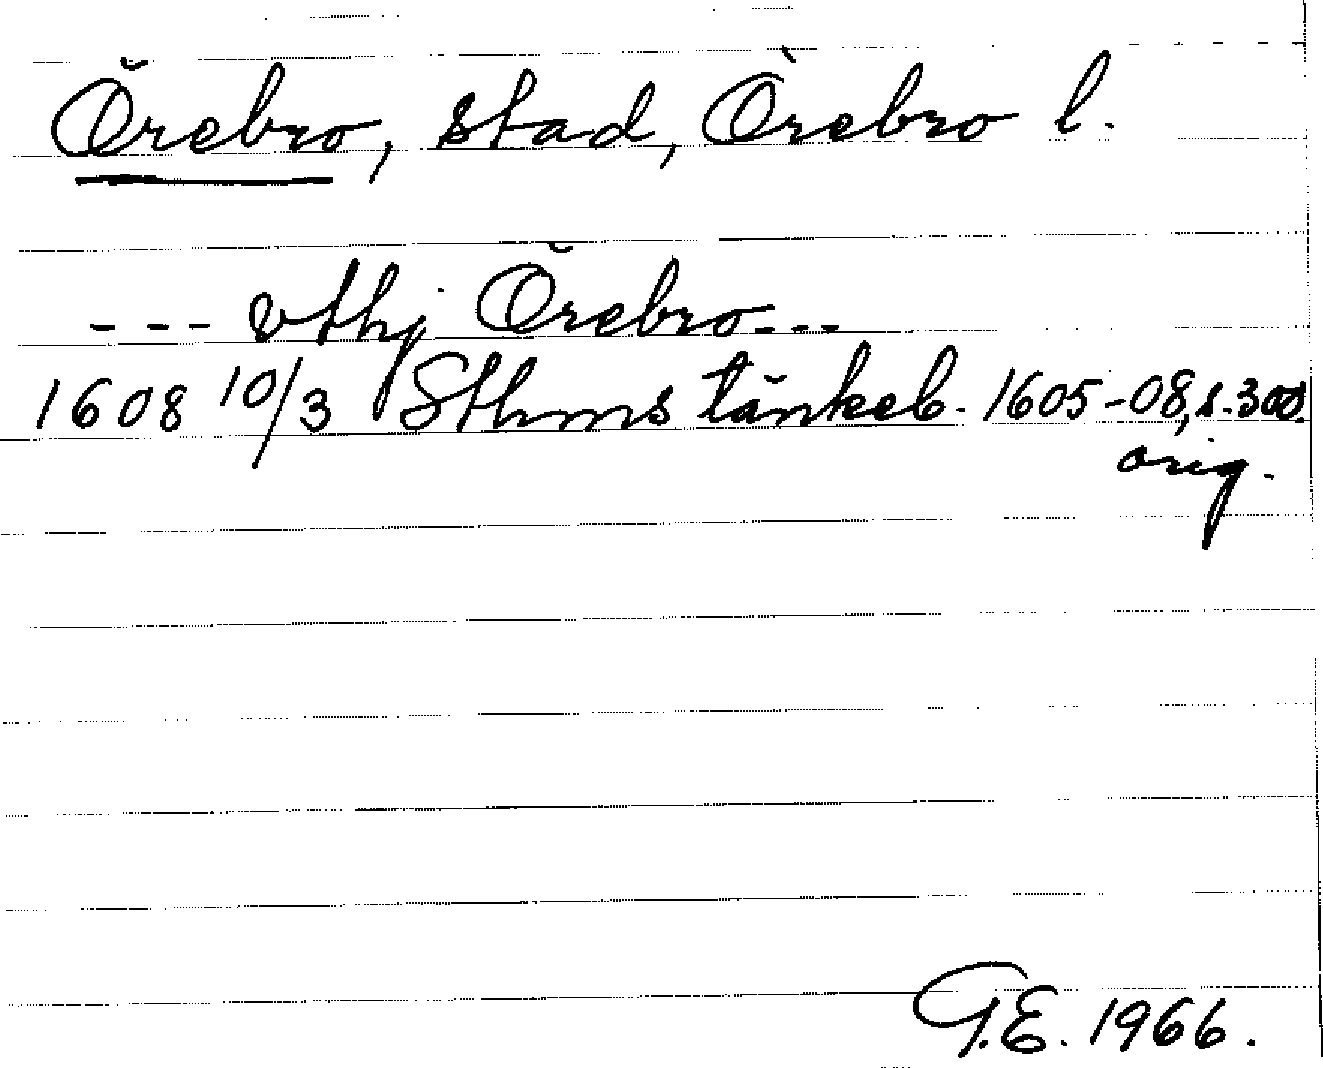 Örebro, stad, Örebro l.
--- vthj Örebro---
1608 10/3 Sthms tänkeb. 1605-08, s. 300.
orig.
G.E. 1966.